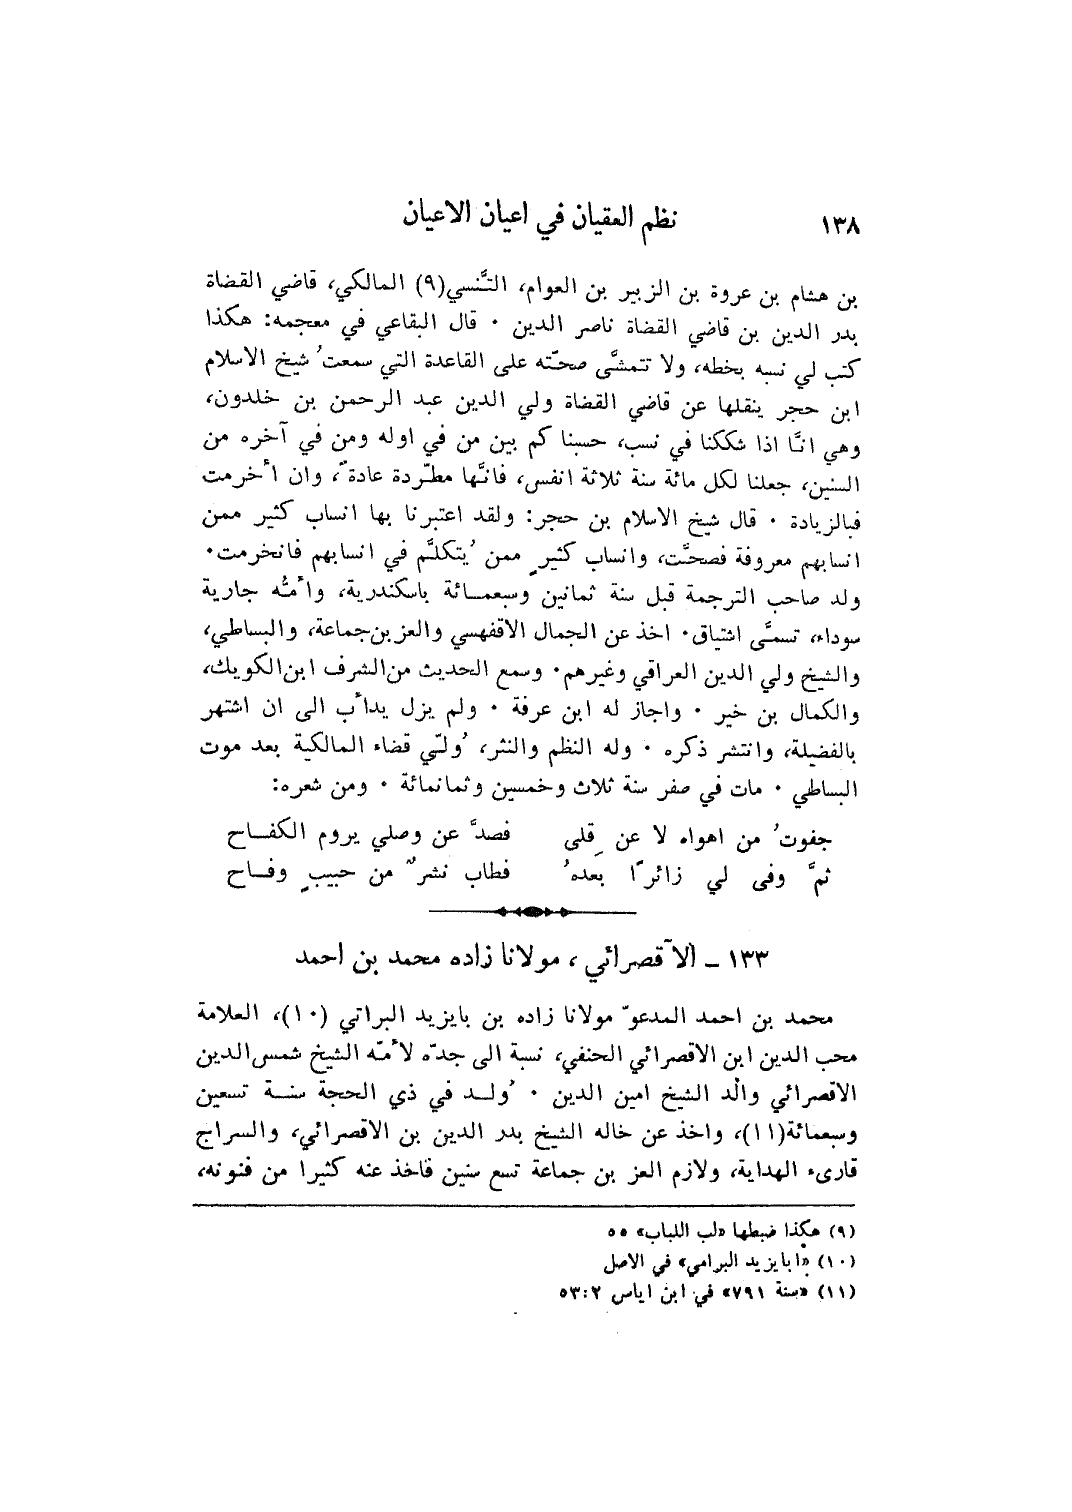 ١٣٨ نظم العقيان في اعيان الاعيان
بن هشام بن عروة بن الزبير بن العوام، التَّنسي(٩) المالكي، قاضي القضاة
بدر الدين بن قاضي القضاة ناصر الدين ٠ قال البقاعي في معجمه: هكذا
كتب لي نسبه بخطه، ولا تتمشَّى صحّته على القاعدة التي سمعتُ شيخ الاسلام
ابن حجر ينقلها عن قاضي القضاة ولي الدين عبد الرحمن بن خلدون،
وهي انَّا اذا شككنا في نسب، حسبنا كم بين من في اوله ومن في آخره من
السنين، جعلنا لكل مائة سنة ثلاثة انفس، فانَّها مطّردة عادةً، وان أخرمت
فبالزيادة ٠ قال شيخ الاسلام بن حجر: ولقد اعتبرنا بها انساب كثير ممن
انسابهم معروفة فصحَّت، وانساب كثيرٍ ممن يُتكلَّم في انسابهم فانخرمت٠
ولد صاحب الترجمة قبل سنة ثمانين وسبعمائة باسكندرية، وأمُّه جارية
سوداء، تسمَّى اشتياق٠ اخذ عن الجمال الاقفهسي والعز بن جماعة، والبساطي،
والشيخ ولي الدين العراقي وغيرهم٠ وسمع الحديث من الشرف ابن الكويك،
والكمال بن خير ٠ واجاز له ابن عرفة ٠ ولم يزل يدأب الى ان اشتهر
بالفضيلة، وانتشر ذكره ٠ وله النظم والنثر، وُلّي قضاء المالكية بعد موت
البساطي ٠ مات في صفر سنة ثلاث وخمسين وثمانمائة ٠ ومن شعره:
جفوتُ من اهواه لا عن قِلى فصدَّ عن وصلي يروم الكفاح
ثمَّ وفى لي زائرًا بعدهُ فطاب نشرٌ من حبيبٍ وفاح
١٣٣ ـ الآقصرائي، مولانا زاده محمد بن احمد
محمد بن احمد المدعوّ مولانا زاده بن بايزيد البراتي (١٠)، العلامة
محب الدين ابن الاقصرائي الحنفي، نسبة الى جدّه لأمّه الشيخ شمس الدين
الاقصرائي والد الشيخ امين الدين ٠ وُلد في ذي الحجة سنة تسعين
وسبعمائة(١١)، واخذ عن خاله الشيخ بدر الدين بن الاقصرائي، والسراج
قارىء الهداية، ولازم العز بن جماعة تسع سنين فاخذ عنه كثيرا من فنونه،
(٩) هكذا ضبطها «لب اللباب» ٥٥
(١٠) «ابايزيد البرامي» في الاصل
(١١) «سنة ٧٩١» في ابن اياس ٥٣:٢